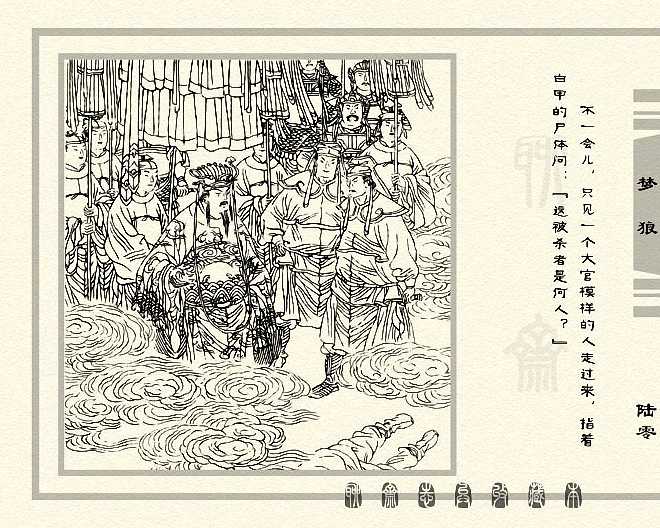 不一会儿，只见一个大官模样的人走过来，指着
白甲的尸体问：「这被杀者是何人？」
梦狼
陆零
聊斋志异收藏本